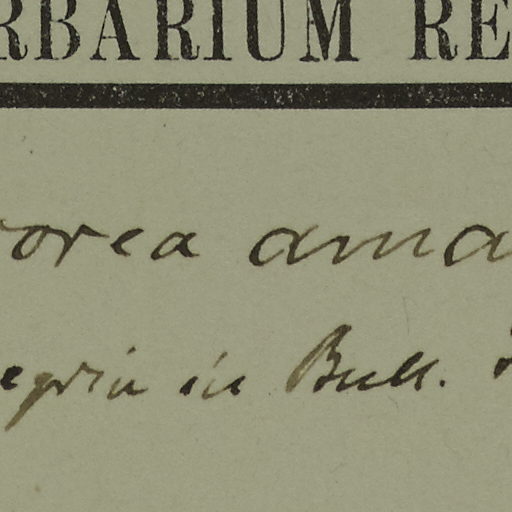 RBARIUM RE
orea ama
egria in Bull.